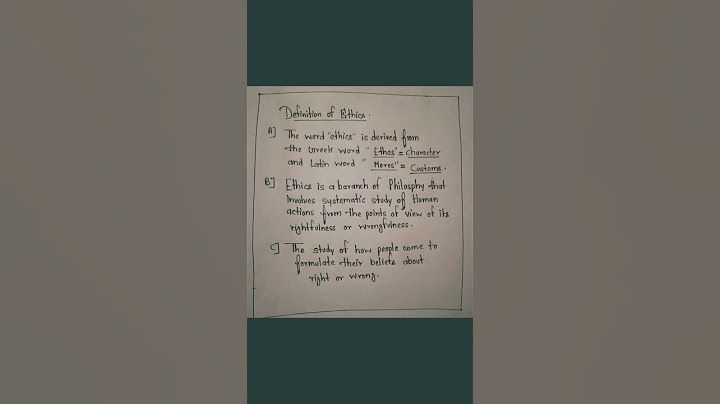 Definition of Ethics.
A] The word "ethics" is derived from
the Greek word "Ethos" = Character
and Latin word "Mores" = Customs.
B] Ethics is a baranch of Philosphy that
involves systematic study of Human
actions from the points of view of its
rightfulness or wrongfulness.
C] The study of how people come to
formulate their beliefs about
right or wrong.